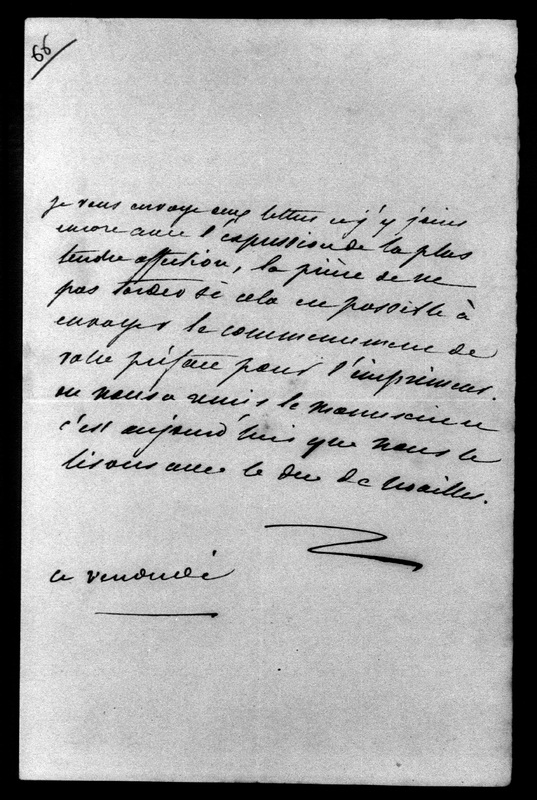 66
je vous envoye ces lettres et j'y joins
encore avec l'expression de la plus
tendre affection, la prière de ne
pas tarder si cela est possible à
envoyer le commencement de
votre préface pour l'imprimeur.
on nous a remis le manuscrit
c'est aujourd'hui que nous le
lisons avec le duc de Noailles.
ce vendredi